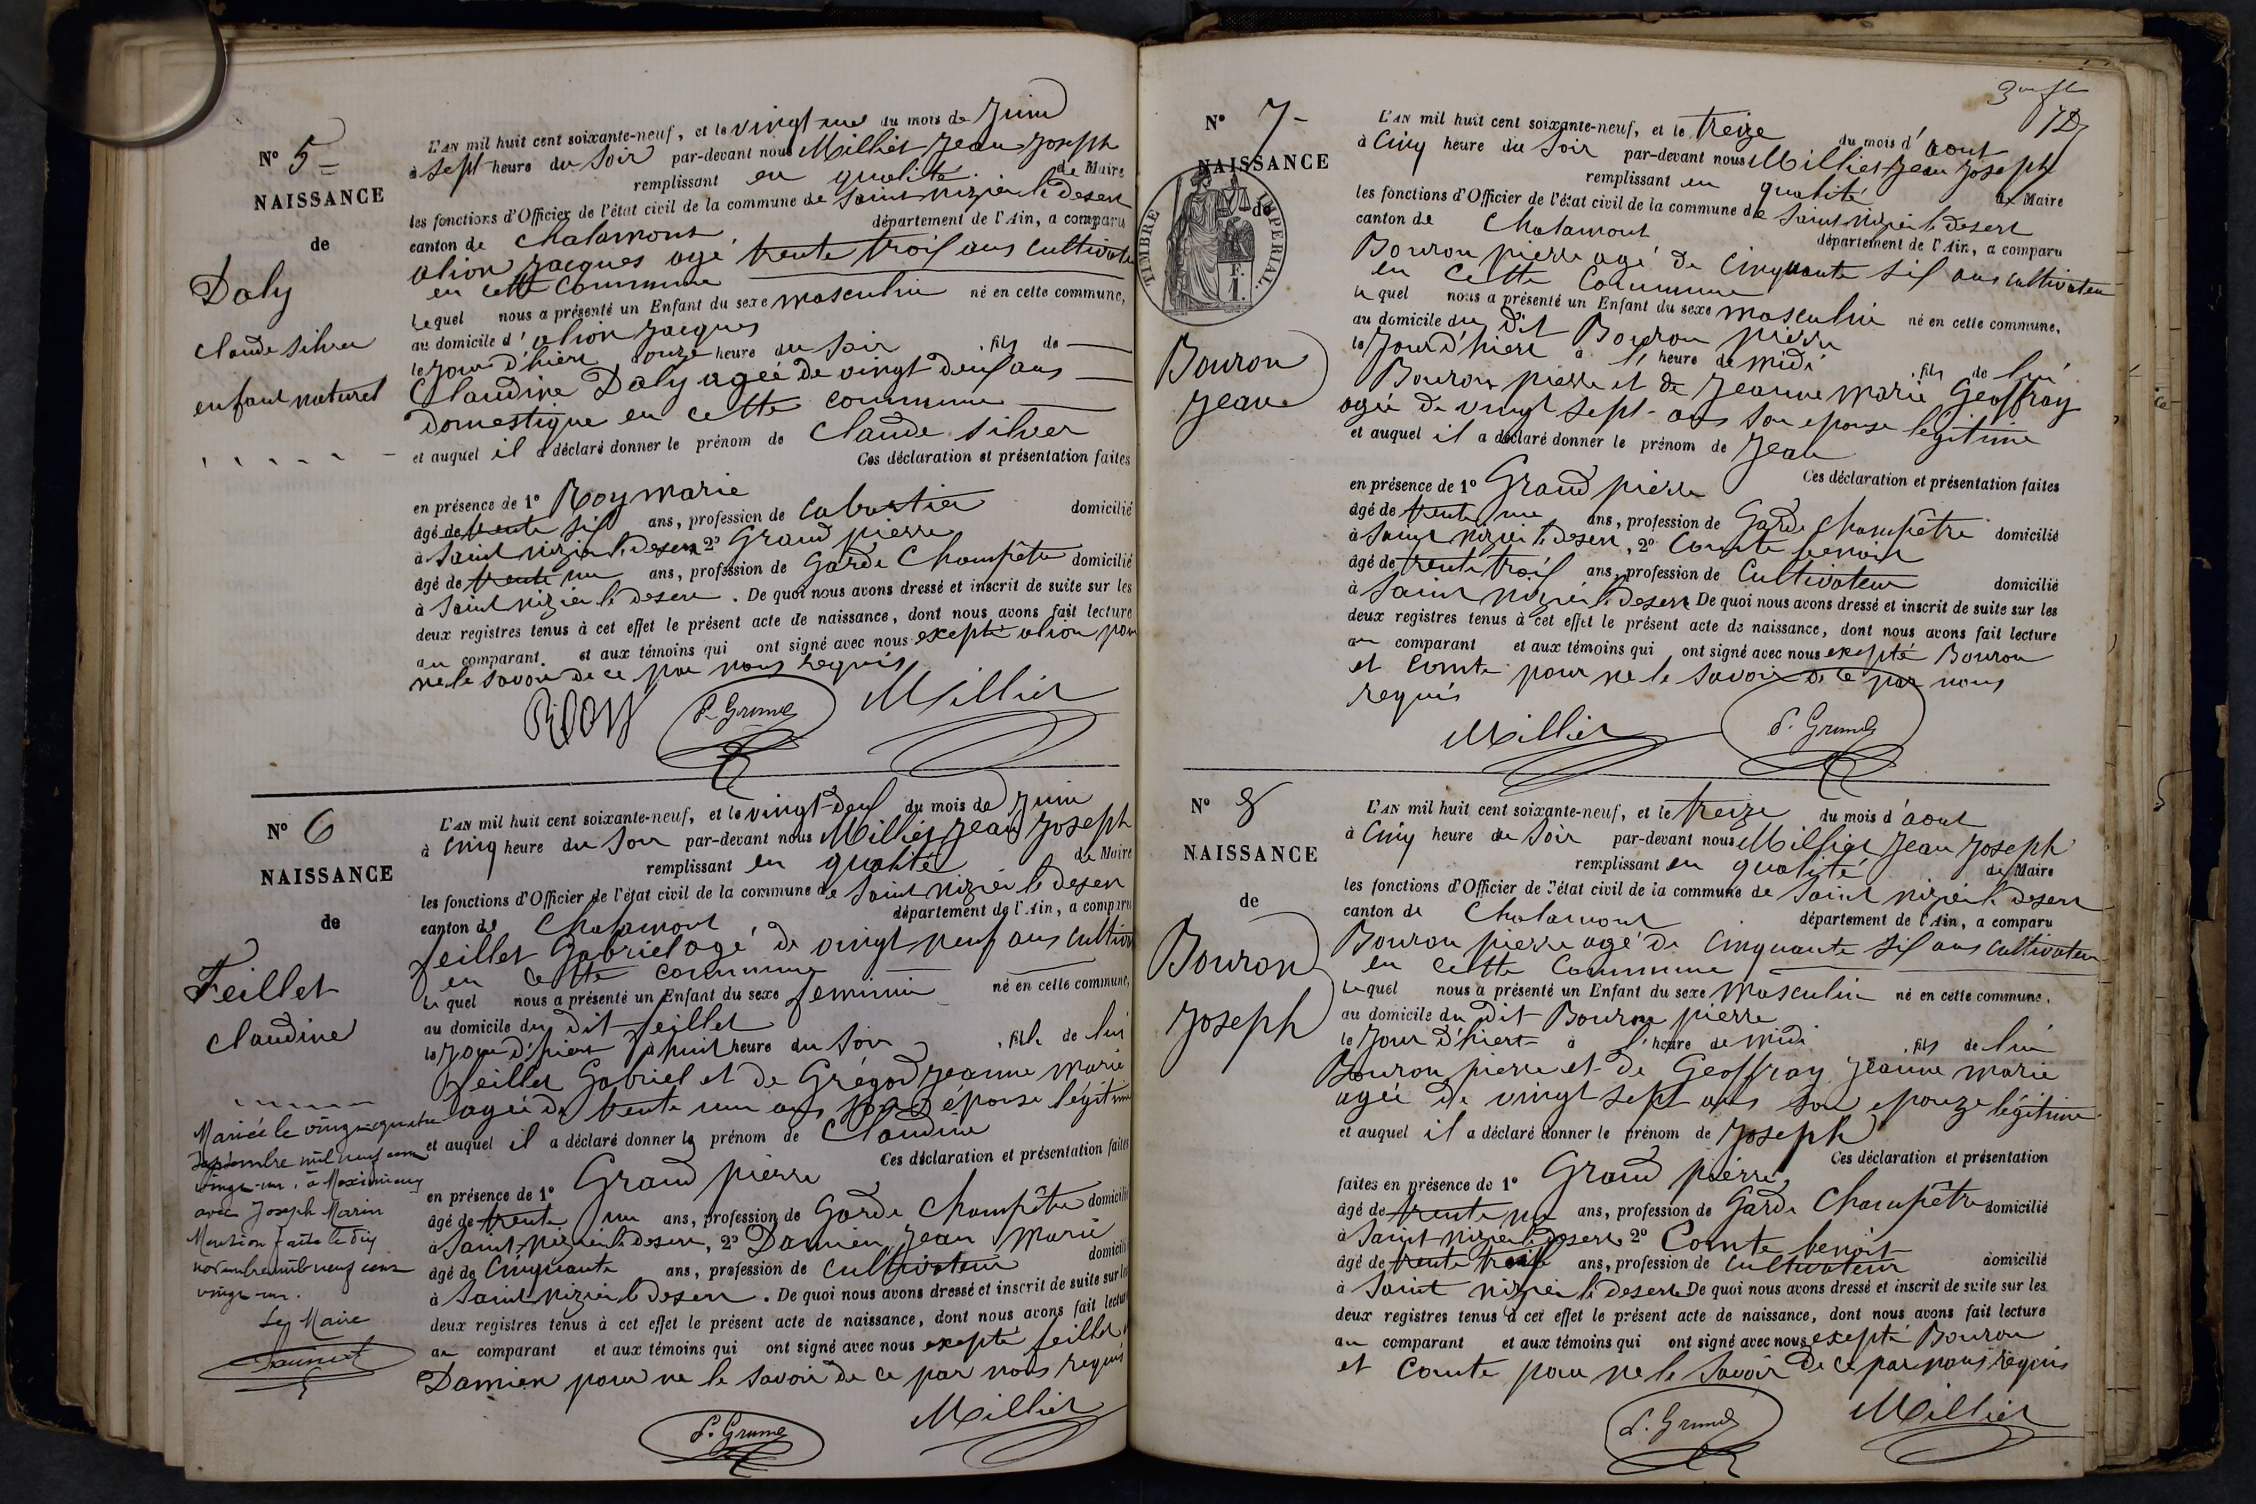 N° 5
NAISSANCE
de
Daly
Claude Silver
enfant naturel
L'AN mil huit cent soixante-neuf, et le vingt un du mois de Juin
à sept heure du Soir par-devant nous Milliet Jean Joseph
remplissant en qualité de Maire
les fonctions d'Officier de l'état civil de la commune de Saint nizier le Desert
canton de Chalamont département de l'Ain, a comparu
alion Jacques agé trente trois ans cultivate
en cette Commune
Lequel nous a présenté un Enfant du sexe masculin né en cette commune,
au domicile d'alion Jacques
le Jour d'hiere à onze heure du Soir , fils de
Claudine Daly ageé de vingt deux ans
Domestique en cette commune
et auquel il a déclaré donner le prénom de Claude Silver
Ces déclaration et présentation faites
en présence de 1° Roy marie
âgé de trente six ans, profession de Cabartier domicilié
à Saint nizier le desert 2° Grand pierre
âgé de trente un ans, profession de Garde Champêtre domicilié
à Saint nizier le desert. De quoi nous avons dressé et inscrit de suite sur les
deux registres tenus à cet effet le présent acte de naissance, dont nous avons fait lecture
au comparant. et aux témoins qui ont signé avec nous excepté alion pour
ne le savoir de ce par nous requis
P. Grand Milliet
N° 6
NAISSANCE
de
Feillet
Claudine
Mariée le vingt-quatre
septembre mil neuf cent
vingt-un, à Meximieux
avec Joseph Marin
Mention faite le dix
novembre mil neuf cent
vingt-un.
Le Maire
L'AN mil huit cent soixante-neuf, et le vingt-deux du mois de Juin
à Cinq heure du Soir par-devant nous Milliet Jean Joseph
remplissant en qualité de Maire
les fonctions d'Officier de l'état civil de la commune de Saint nizier le Desert
canton de Chalamont département de l'Ain, a comparu
feillet Gabriel agé de vingt neuf ans cultiva
en cette commune
Lequel nous a présenté un Enfant du sexe feminin né en cette commune,
au domicile du dit feillet
le Jour d'hiere à huit heure du Soir , fille de lui
feillet Gabriel et de Grégod Jeanne marie
ageé de trente un ans son épouse légitime
et auquel il a déclaré donner le prénom de Claudine
Ces déclaration et présentation faites
en présence de 1° Grand pierre
âgé de trente un ans, profession de Garde Champêtre domicilié
à Saint nizier le desert, 2° Damien Jean Marie
âgé de Cinquante ans, profession de cultivateur domicilié
à Saint nizier le desert. De quoi nous avons dressé et inscrit de suite sur les
deux registres tenus à cet effet le présent acte de naissance, dont nous avons fait lecture
au comparant et aux témoins qui ont signé avec nous excepté feillet
Damien pour ne le savoir de ce par nous requis
P. Grand Milliet
N° 7
NAISSANCE
de
TIMBRE IMPERIAL.
F.
1.
Bouron
Jean
L'AN mil huit cent soixante-neuf, et le treize du mois d'aout
à Cinq heure du Soir par-devant nous Milliet Jean Joseph
remplissant en qualité de Maire
les fonctions d'Officier de l'état civil de la commune de Saint nizier le desert
canton de Chalamont département de l'Ain, a comparu
Bouron pierre agé de Cinquante six ans cultivateur
en cette Commune
Lequel nous a présenté un Enfant du sexe masculin né en cette commune,
au domicile du Dit Bouron pierre
le Jour d'hiere à l'heure de midi , fils de lui
Bouron pierre et de Jeanne marie Geoffray
ageé de vingt sept ans son epouse legitime
et auquel il a déclaré donner le prénom de Jean
Ces déclaration et présentation faites
en présence de 1° Grand pierre
âgé de trente un ans, profession de Garde Champêtre domicilié
à Saint nizier le desert, 2° Comte benoit
âgé de trente trois ans, profession de Cultivateur domicilié
à Saint nizier le desert De quoi nous avons dressé et inscrit de suite sur les
deux registres tenus à cet effet le présent acte de naissance, dont nous avons fait lecture
au comparant et aux témoins qui ont signé avec nous excepté Bouron
et Comte pour ne le savoir de ce par nous
requis
Milliet P. Grand
N° 8
NAISSANCE
de
Bouron
Joseph
L'AN mil huit cent soixante-neuf, et le treize du mois d'aout
à Cinq heure du Soir par-devant nous Milliet Jean Joseph
remplissant en qualité de Maire
les fonctions d'Officier de l'état civil de la commune de Saint nizier le desert
canton de Chalamont département de l'Ain, a comparu
Bouron pierre agé de Cinquante six ans cultivateur
en cette Commune
Lequel nous a présenté un Enfant du sexe masculin né en cette commune.
au domicile du dit Bouron pierre
le Jour d'hiere à l'heure de midi , fils de lui
Bouron pierre et de Geoffray Jeanne marie
ageé de vingt sept ans son epouze légitime
et auquel il a déclaré donner le prénom de Joseph
Ces déclaration et présentation
faites en présence de 1° Grand pierre
âgé de trente un ans, profession de Garde Champêtre domicilié
à Saint nizier le desert 2° Comte benoit
âgé de trente trois ans, profession de Cultivateur domicilié
à Saint nizier le desert De quoi nous avons dressé et inscrit de suite sur les
deux registres tenus à cet effet le présent acte de naissance, dont nous avons fait lecture
au comparant et aux témoins qui ont signé avec nous excepté Bouron
et Comte pour ne le savoir de ce par nous requis
P. Grand Milliet